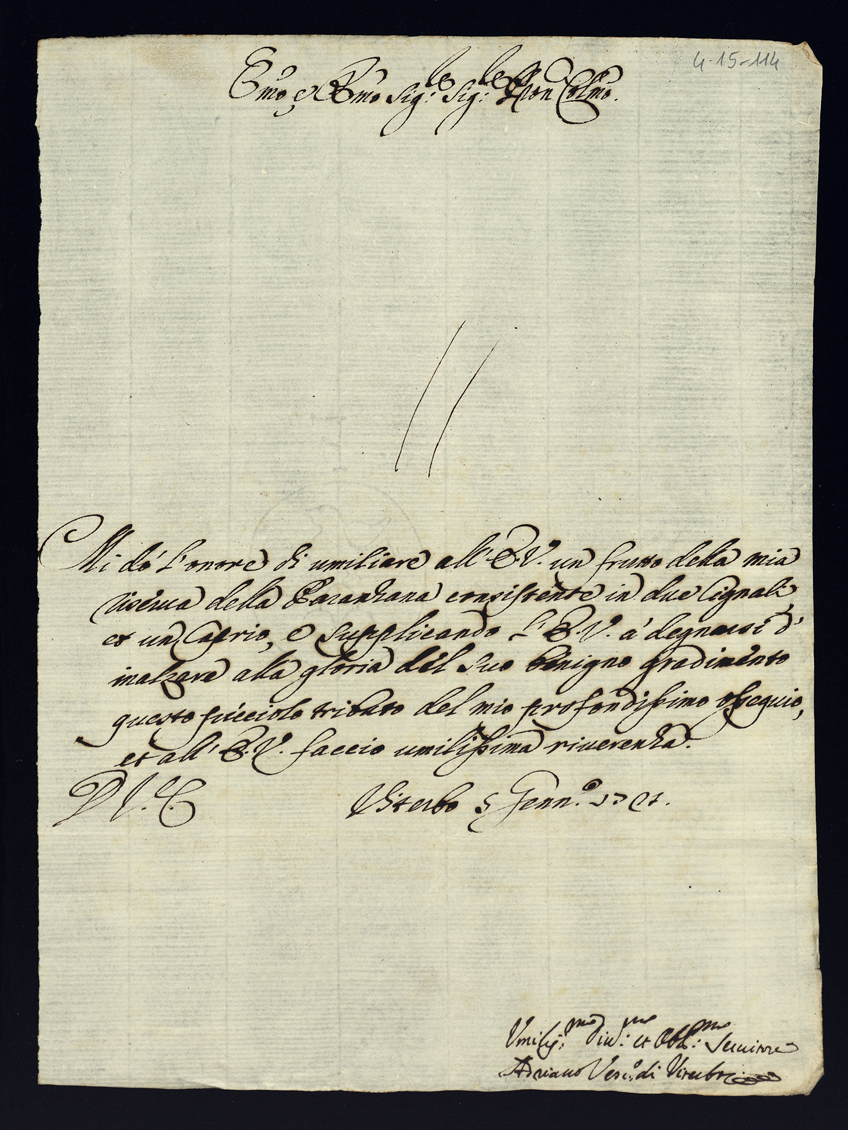 4-15-114
Emo, e Rmo Sig:re Sig:re Pron Colmo.
Mi dò l'onore di umiliare all'E.V. un frutto della mia
riserva della Palanzana consistente in due Cignali,
et un Caprio, e supplicando l'E.V. à degnarsi d'
inalzare alla gloria del suo benigno gradimento
questo picciolo tributo del mio profondissimo ossequio,
et all'E.V. faccio umilissima riverenza.
D. V. E. Viterbo 5 Genn.o
Umiliss:mo Div:mo et Obb:mo Servitore
Adriano Vesc.o di Viterbo